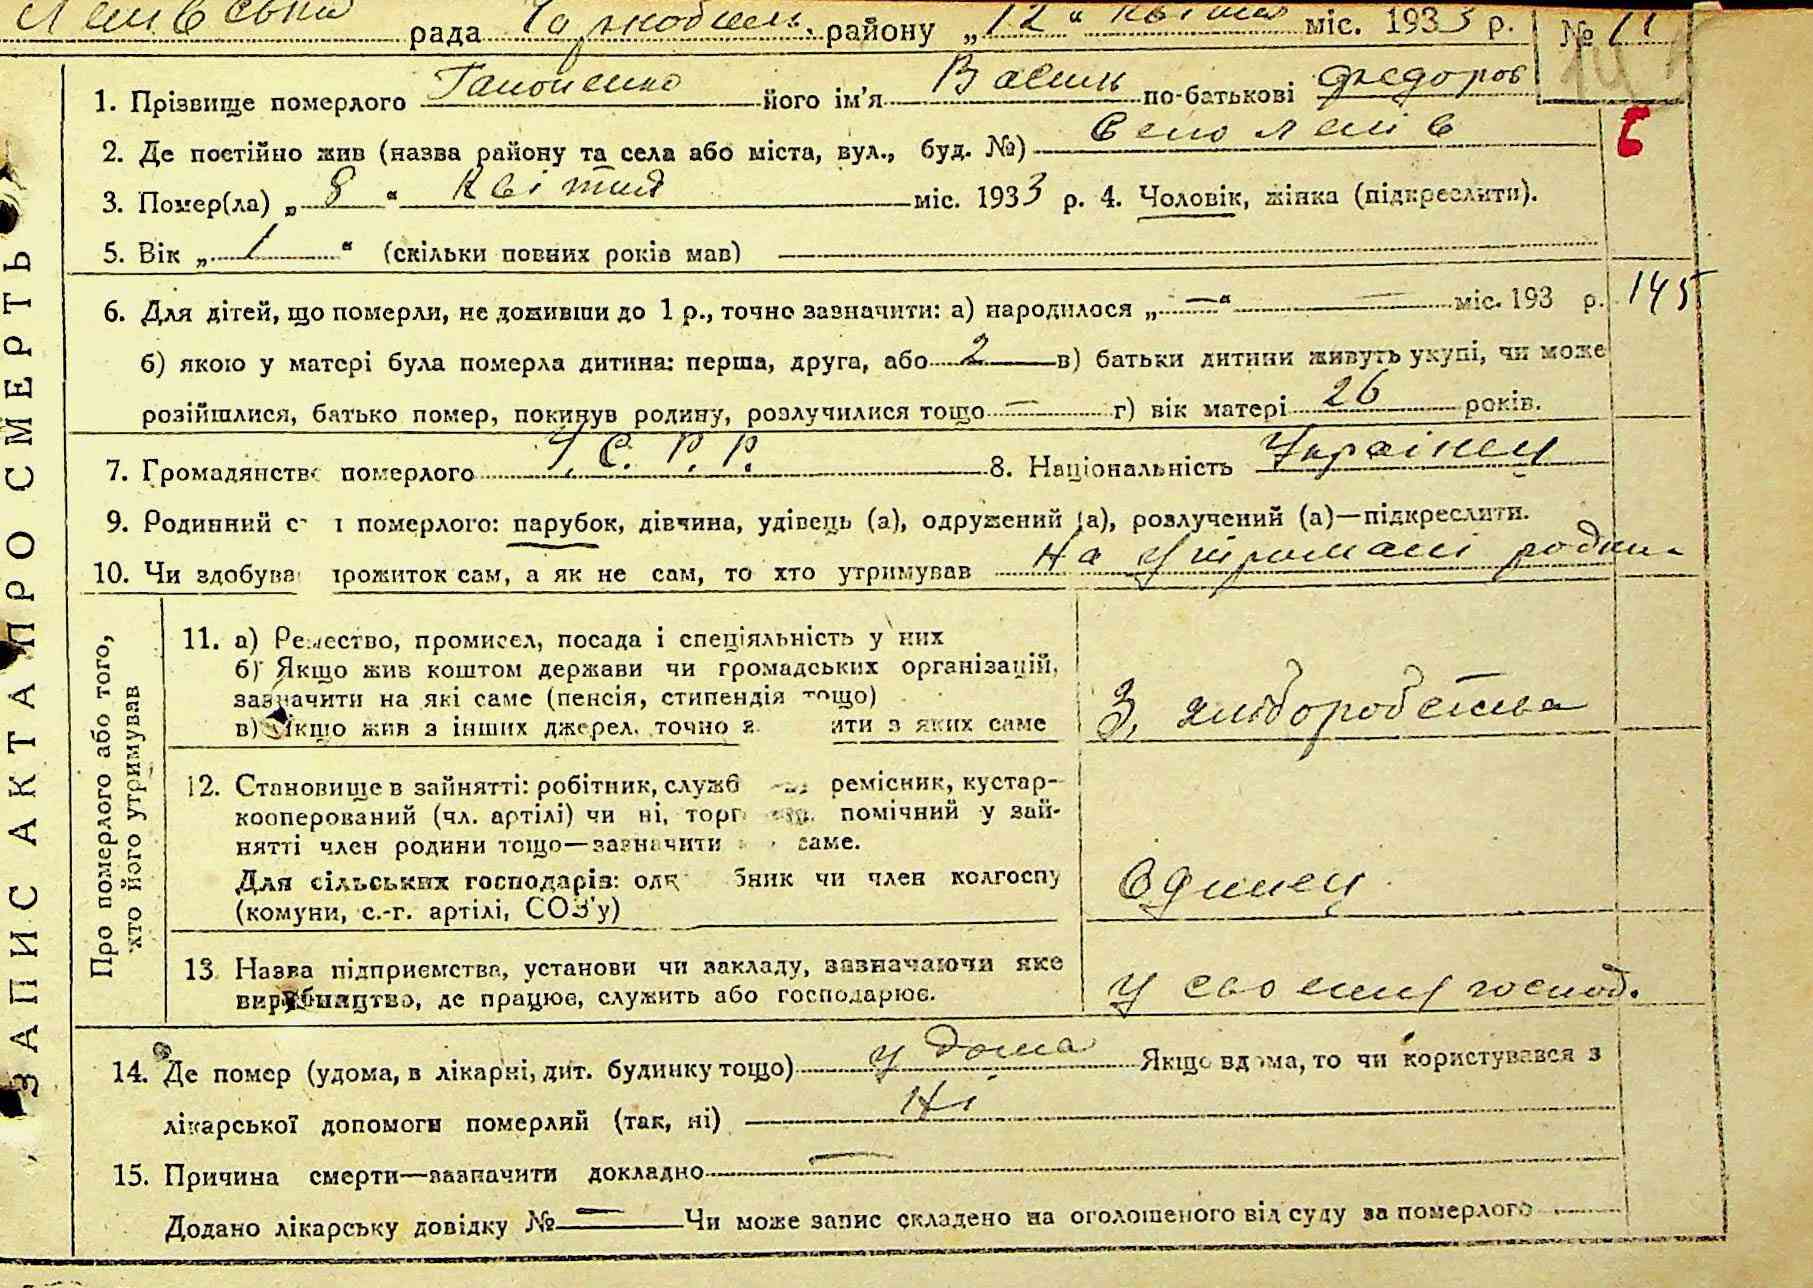 Лелівська рада Чорнобильськ. району „12“ квітня міс. 1933 р. № 11
1. Прізвище померлого Гапоненко його ім'я Василь по-батькові Федоров
2. Де постійно жив (назва району та села або міста, вул., буд. №) Село Лелів
6
3. Помер(ла) „8“ квітня міс. 1933 р. 4. Чоловік, жінка (підкреслити).
5. Вік „1“ (скільки повних років мав)
6. Для дітей, що померли, не доживши до 1 р., точно зазначити: а) народилося „—“ — міс. 193 р. 145
б) якою у матері була померла дитина: перша, друга, або 2 в) батьки дитини живуть укупі, чи може
розійшлися, батько помер, покинув родину, розлучилися тощо — г) вік матері 26 років.
7. Громадянство померлого У.С.Р.Р. 8. Національність Українец
9. Родинний с і померлого: парубок, дівчина, удівець (а), одружений (а), розлучений (а)—підкреслити.
10. Чи здобува прожиток сам, а як не сам, то хто утримував На утримані родини
ЗАПИС АКТА ПРО СМЕРТЬ
Про померлого або того,
хто його утримував
11. а) Ремество, промисел, посада і спеціяльність у них
б) Якщо жив коштом держави чи громадських організацій,
зазначити на які саме (пенсія, стипендія тощо)
в) Якщо жив з інших джерел, точно з ити з яких саме
З хліборобства
12. Становище в зайнятті: робітник, служб ремісник, кустар-
кооперований (чл. артілі) чи ні, торг помічний у зай-
нятті член родини тощо—зазначити саме.
Для сільських господарів: од бник чи член колгоспу
(комуни, с.-г. артілі, СОЗ'у)
Одинец
13. Назва підприємства, установи чи закладу, зазначаючи яке
виробництво, де працює, служить або господарює.
у своєму господ.
14. Де помер (удома, в лікарні, дит. будинку тощо) у дома Якщо вдома, то чи користувався з
лікарської допомоги померлий (так, ні) Ні
15. Причина смерти—зазначити докладно —
Додано лікарську довідку № — Чи може запис складено на оголошеного від суду за померлого